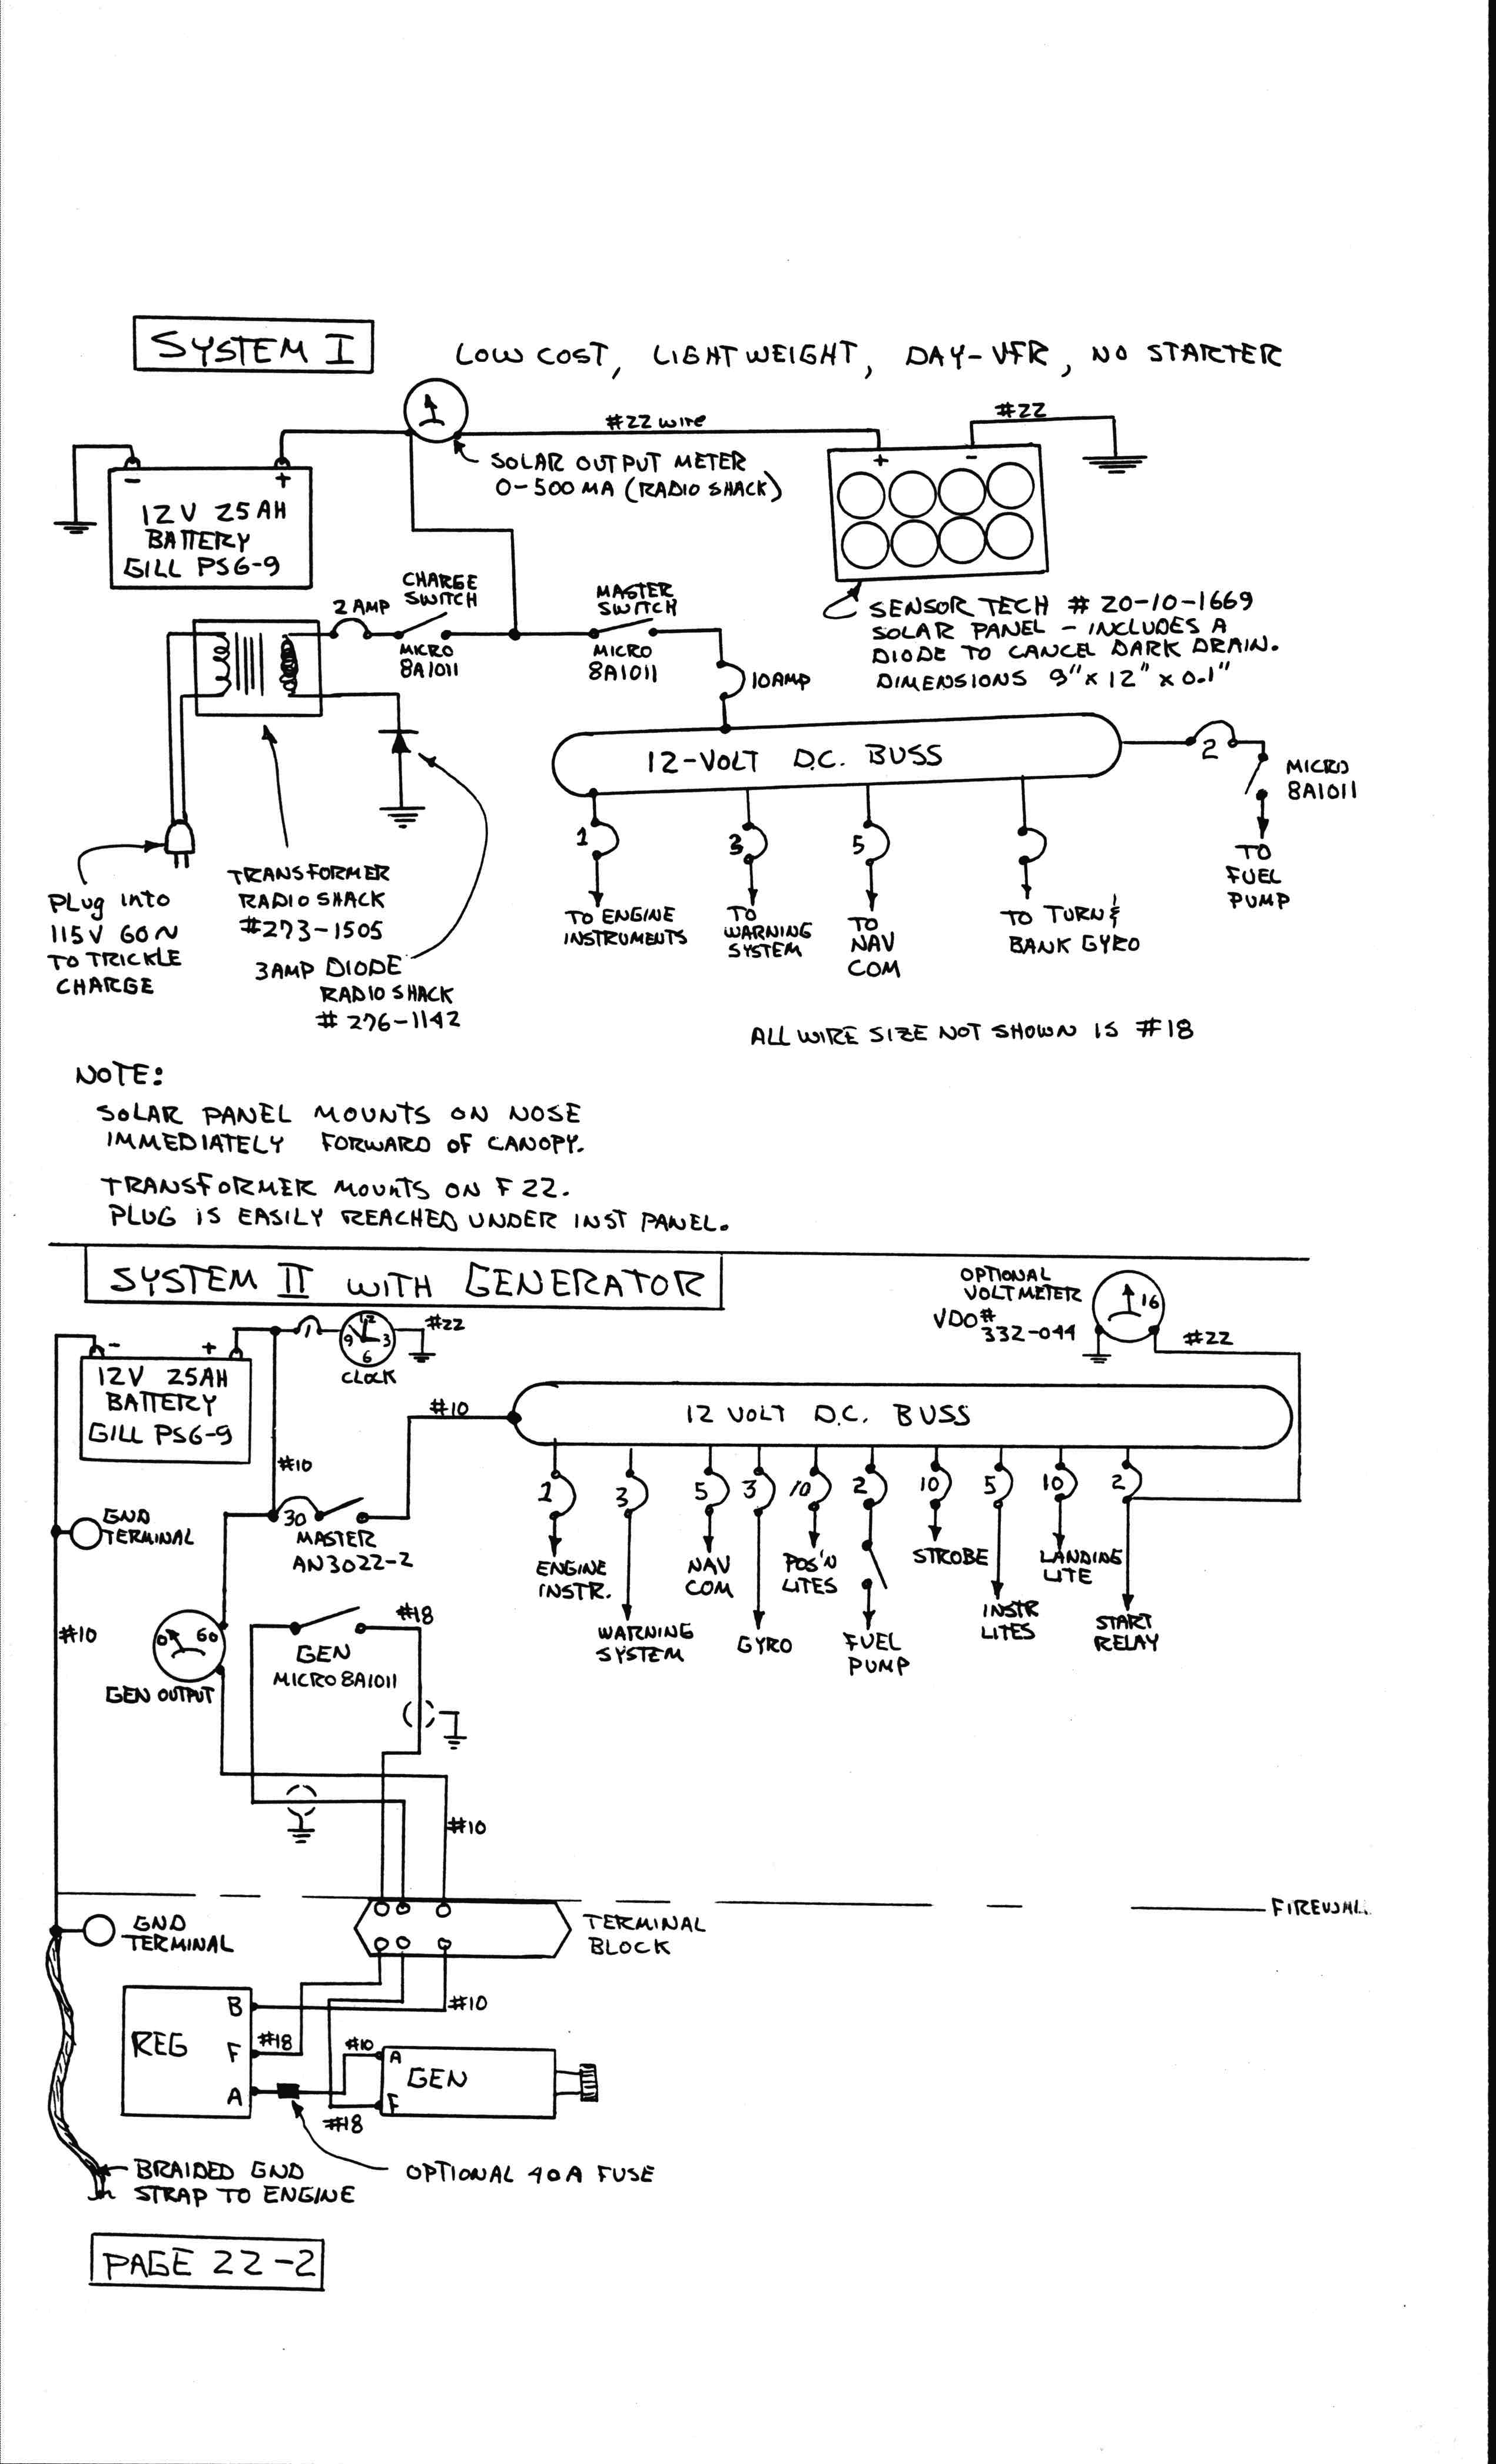 SYSTEM I
LOW COST, LIGHT WEIGHT, DAY-VFR, NO STARTER
#22 wire
#22
SOLAR OUTPUT METER
0-500 MA (RADIO SHACK)
+
-
-
+
12V 25AH
BATTERY
GILL PS6-9
2 AMP
CHARGE
SWITCH
MICRO
8A1011
MASTER
SWITCH
MICRO
8A1011
10AMP
SENSOR TECH # 20-10-1669
SOLAR PANEL - INCLUDES A
DIODE TO CANCEL DARK DRAIN.
DIMENSIONS 9" x 12" x 0.1"
12-VOLT D.C. BUSS
2
MICRO
8A1011
TO
FUEL
PUMP
1
3
5
TO ENGINE
INSTRUMENTS
TO
WARNING
SYSTEM
TO
NAV
COM
TO TURN &
BANK GYRO
PLUG INTO
115V 60~
TO TRICKLE
CHARGE
TRANSFORMER
RADIO SHACK
#273-1505
3AMP DIODE
RADIO SHACK
# 276-1142
ALL WIRE SIZE NOT SHOWN IS #18
NOTE:
SOLAR PANEL MOUNTS ON NOSE
IMMEDIATELY FORWARD OF CANOPY.
TRANSFORMER MOUNTS ON F22.
PLUG IS EASILY REACHED UNDER INST PANEL.
SYSTEM II WITH GENERATOR
OPTIONAL
VOLTMETER
VDO#
332-044
16
#22
1
12
9
3
6
#22
CLOCK
-
+
12V 25AH
BATTERY
GILL PS6-9
#10
#10
12 VOLT D.C. BUSS
1
3
5
3
10
2
10
5
10
2
GND
TERMINAL
30
MASTER
AN3022-2
ENGINE
INSTR.
WARNING
SYSTEM
NAV
COM
GYRO
POS'N
LITES
FUEL
PUMP
STROBE
INSTR
LITES
LANDING
LITE
START
RELAY
#10
0
60
GEN OUTPUT
#18
GEN
MICRO 8A1011
#10
FIREWALL
GND
TERMINAL
TERMINAL
BLOCK
REG
B
F
A
#10
#18
#10
A
F
GEN
#18
BRAIDED GND
STRAP TO ENGINE
OPTIONAL 40A FUSE
PAGE 22-2